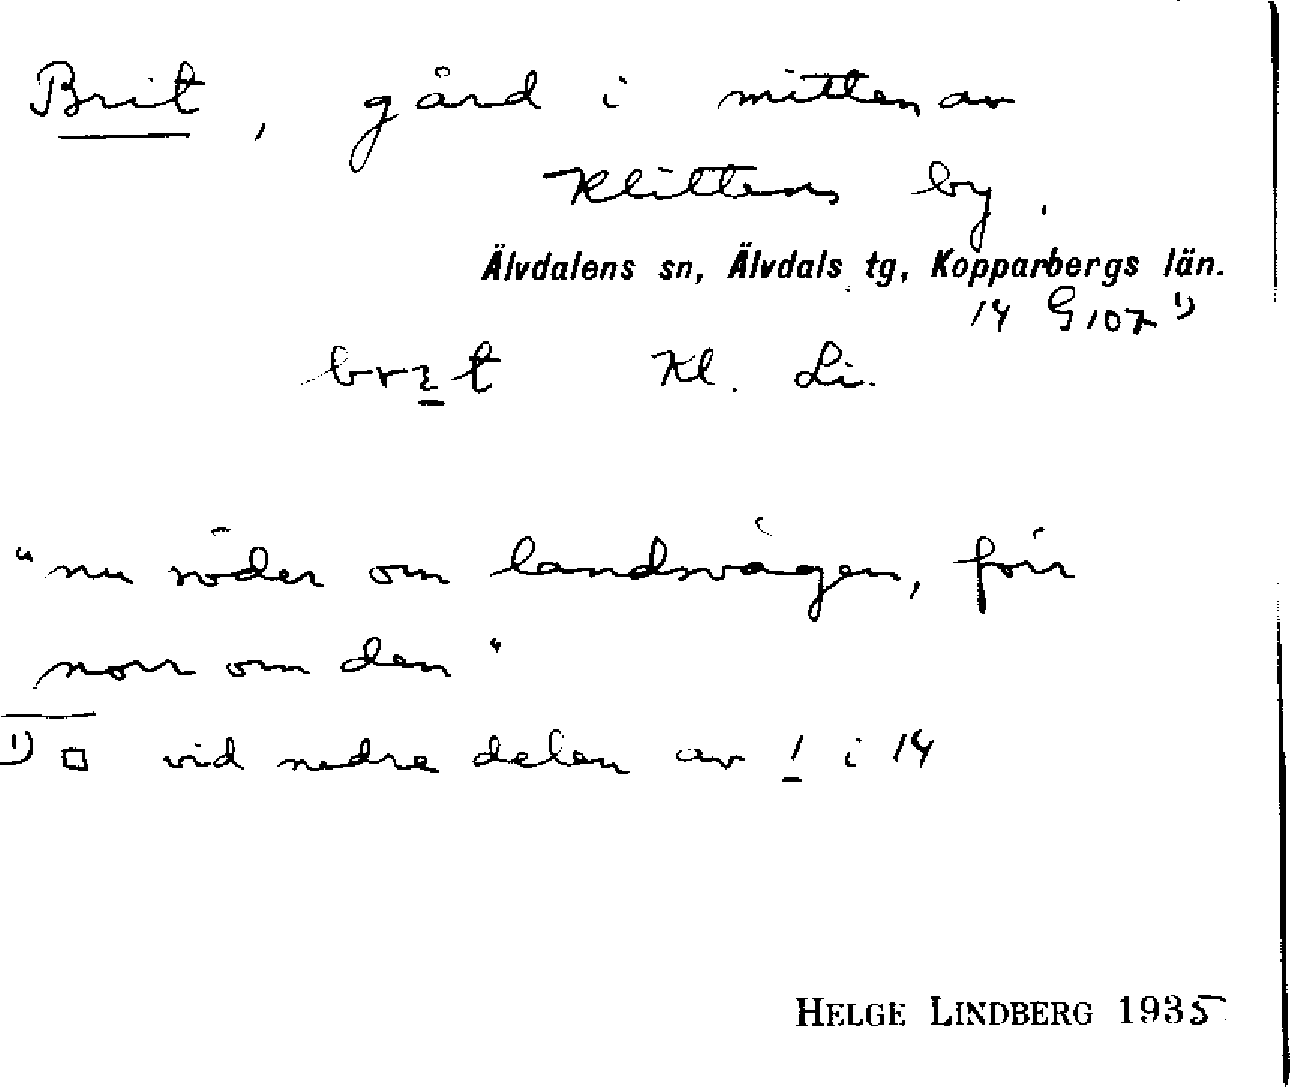 Brit, gård i mitten av
Klittens by.
Älvdalens sn, Älvdals tg, Kopparbergs län.
14 G 107 1)
Kl. Li.
"nu söder om landsvägen, förr
norr om den"
1) □ vid nedre delen av 1 i 14
HELGE LINDBERG 1935